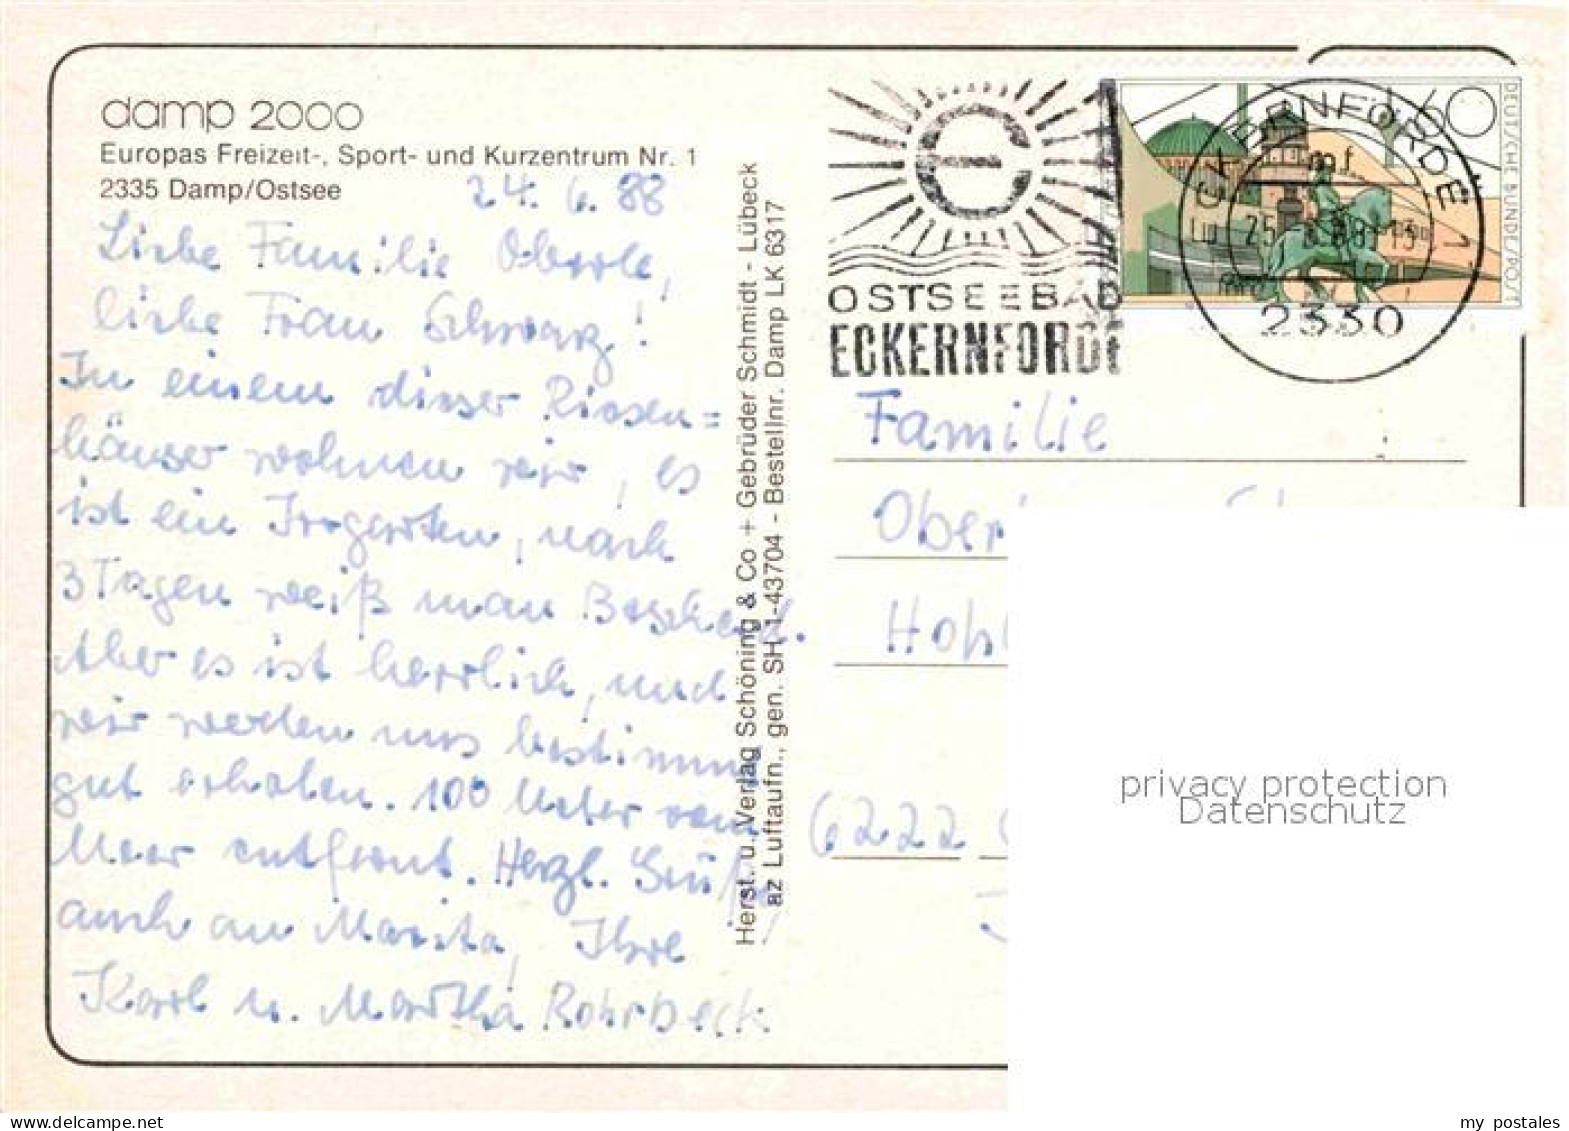 damp 2000
Europas Freizeit-, Sport- und Kurzentrum Nr. 1
2335 Damp/Ostsee
24. 6. 88
Liebe Familie Oberle,
liebe Frau Schwarz!
In einem dieser Riesen=
häuser wohnen wir, es
ist ein Irrgarten, nach
3 Tagen weiß man Bescheid.
Aber es ist herrlich, und
wir werden uns bestimmt
gut erholen. 100 Meter vom
Meer entfernt. Herzl. Grüße
auch an Marita, Ihre
Karl u. Martha Rohrbeck
Herst. u. Verlag Schöning & Co + Gebrüder Schmidt - Lübeck
az Luftaufn., gen. SH 1-43704 - Bestellnr. Damp LK 6317
OSTSEEBAD
ECKERNFÖRDE
60
DEUTSCHE BUNDESPOST
ECKERNFÖRDE 1
2330
Familie
6222
privacy protection
Datenschutz
my postales